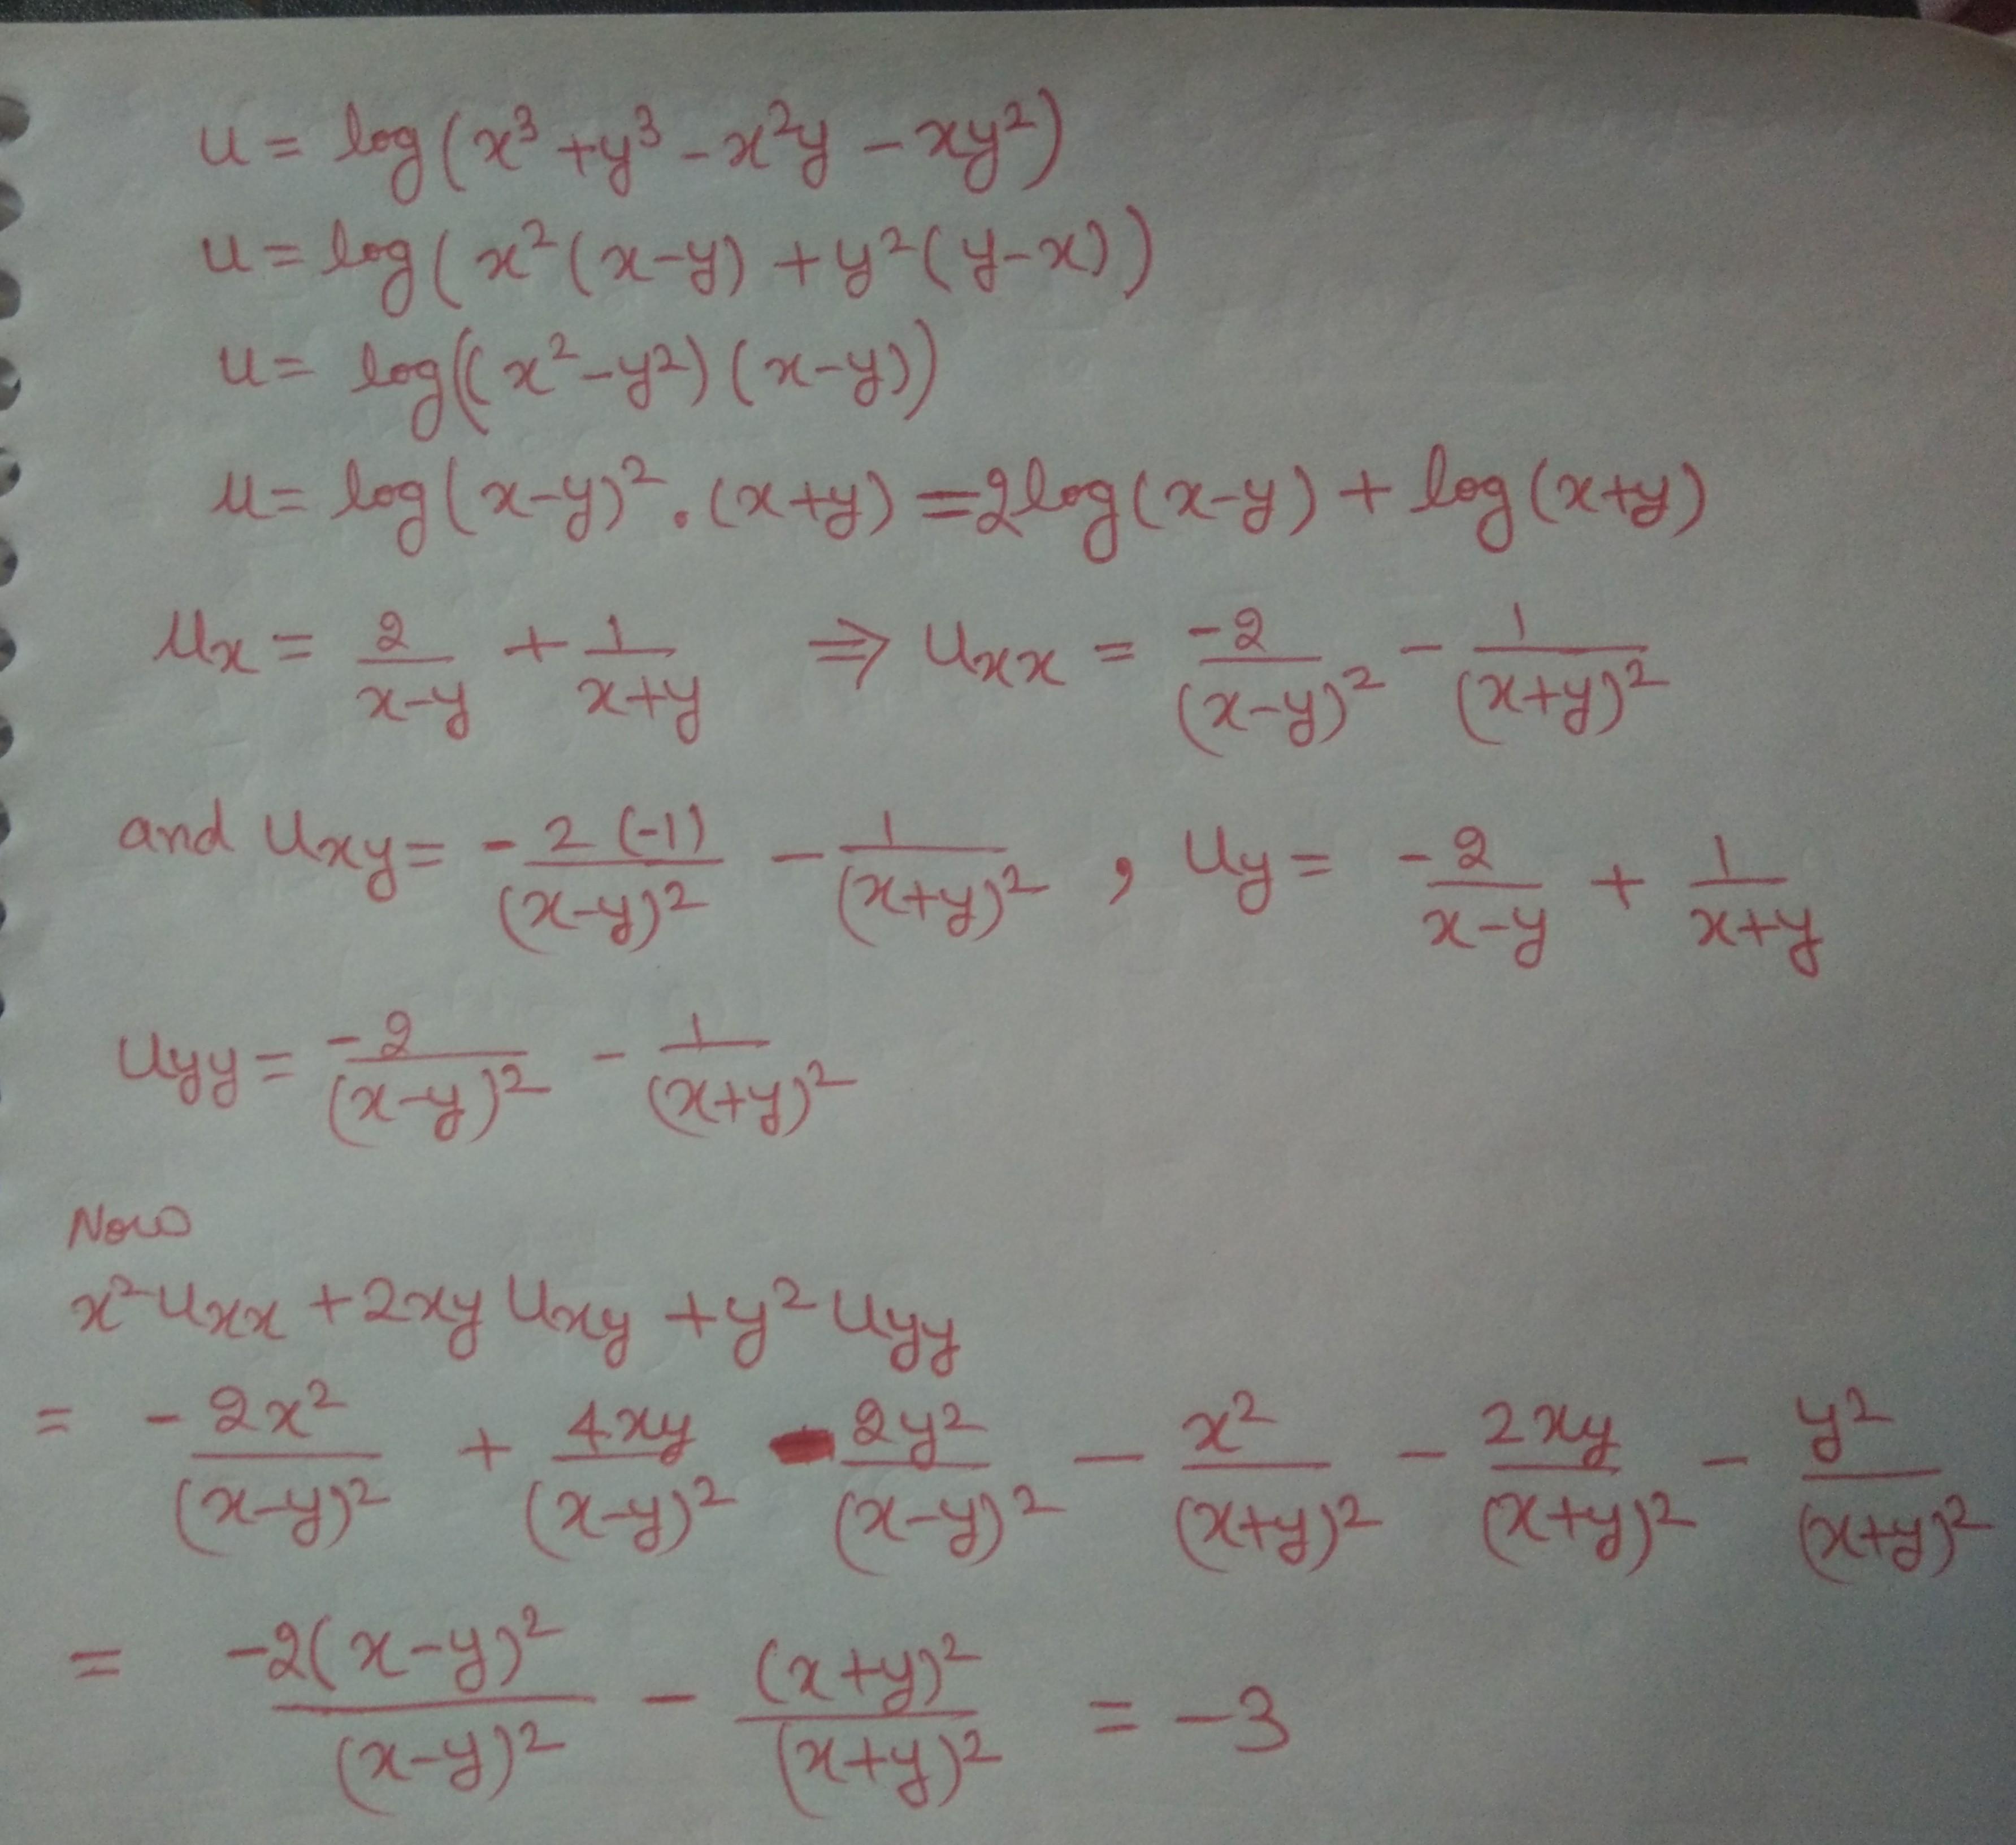 u = log(x³ + y³ - x²y - xy²)
u = log(x²(x-y) + y²(y-x))
u = log((x²-y²)(x-y))
u = log(x-y)².(x+y) = 2log(x-y) + log(x+y)
ux = 2/(x-y) + 1/(x+y) ⇒ uxx = -2/(x-y)² - 1/(x+y)²
and uxy = -2(-1)/(x-y)² - 1/(x+y)², uy = -2/(x-y) + 1/(x+y)
uyy = -2/(x-y)² - 1/(x+y)²
Now
x²uxx + 2xy uxy + y²uyy
= -2x²/(x-y)² + 4xy/(x-y)² - 2y²/(x-y)² - x²/(x+y)² - 2xy/(x+y)² - y²/(x+y)²
= -2(x-y)²/(x-y)² - (x+y)²/(x+y)² = -3